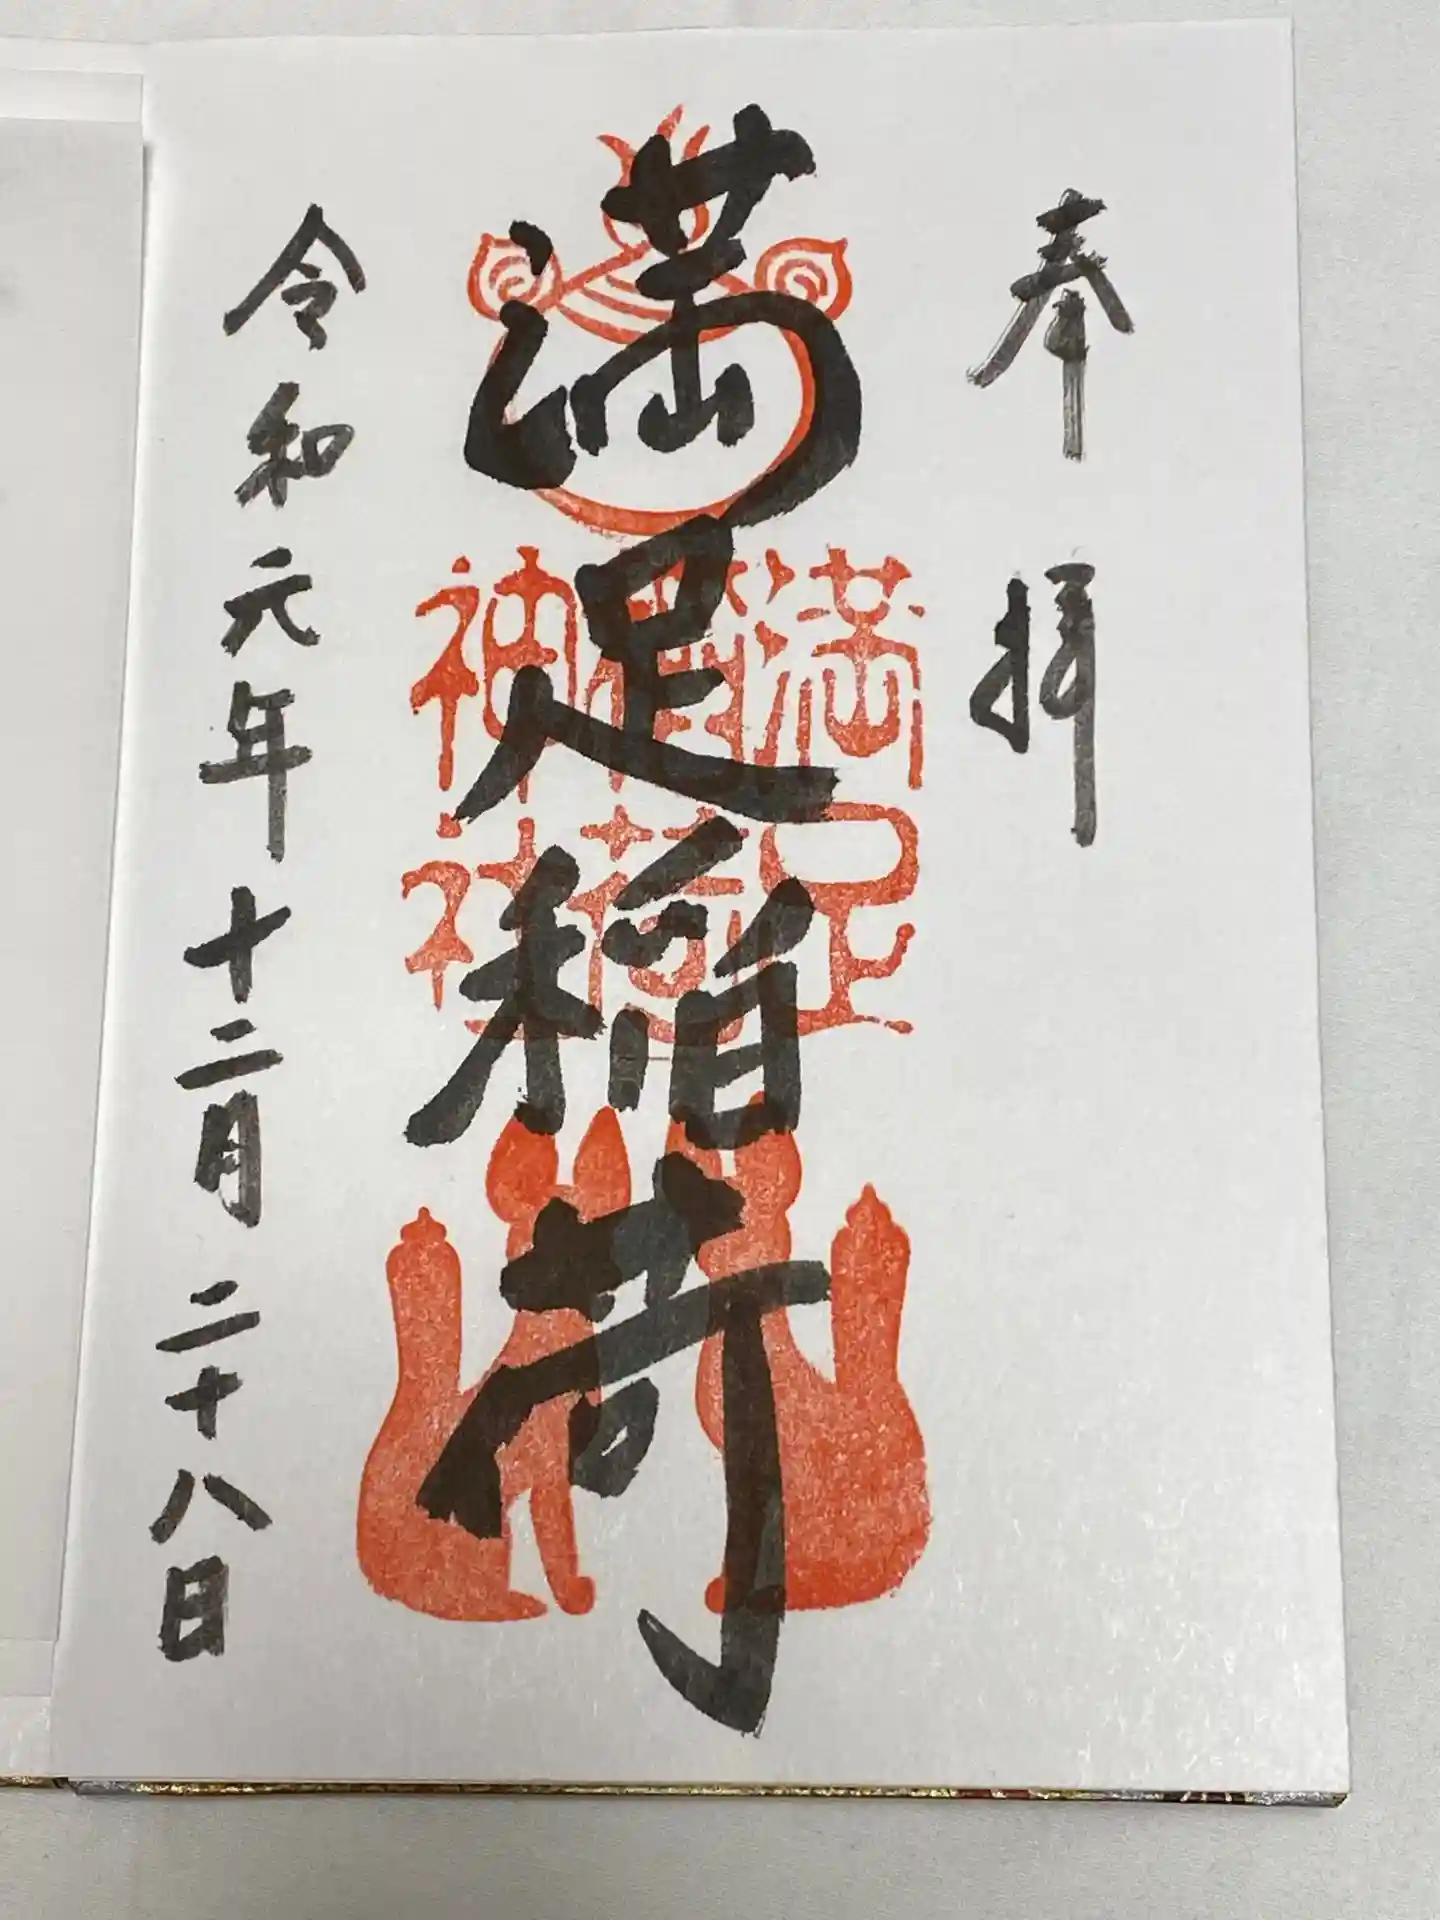 奉拝
満足稲荷
満足
稲荷
神社
令和元年十二月二十八日